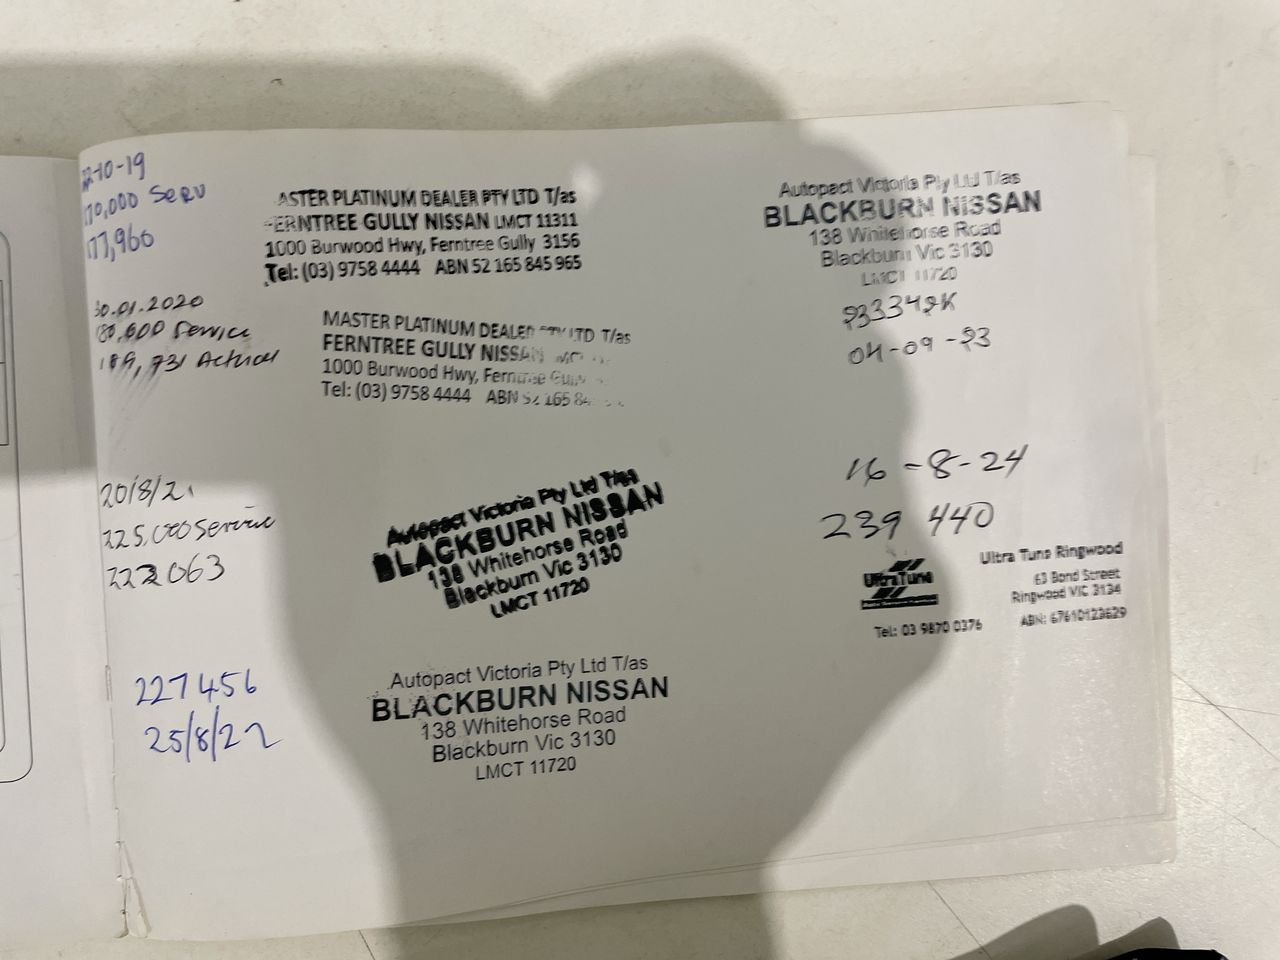 22-10-19
170,000 Serv
177,960
ASTER PLATINUM DEALER PTY LTD T/as
FERNTREE GULLY NISSAN LMCT 11311
1000 Burwood Hwy, Ferntree Gully 3156
Tel: (03) 9758 4444 ABN 52 165 845 965
30.01.2020
Service
189,731 Actual
MASTER PLATINUM DEALER PTY LTD T/as
FERNTREE GULLY NISSAN LMC
1000 Burwood Hwy, Ferntree Gully
Tel: (03) 9758 4444 ABN 52 165 84
20/8/21
225,000 Service
222063
Autopact Victoria Pty Ltd T/as
BLACKBURN NISSAN
138 Whitehorse Road
Blackburn Vic 3130
LMCT 11720
227456
25/8/22
Autopact Victoria Pty Ltd T/as
BLACKBURN NISSAN
138 Whitehorse Road
Blackburn Vic 3130
LMCT 11720
Autopact Victoria Pty Ltd T/as
BLACKBURN NISSAN
138 Whitehorse Road
Blackburn Vic 3130
LMCT 11720
04-09-23
16-8-24
239 440
UltraTune
Tel: 03 9870 0376
Ultra Tune Ringwood
63 Bond Street
Ringwood VIC 3134
ABN: 67610123629